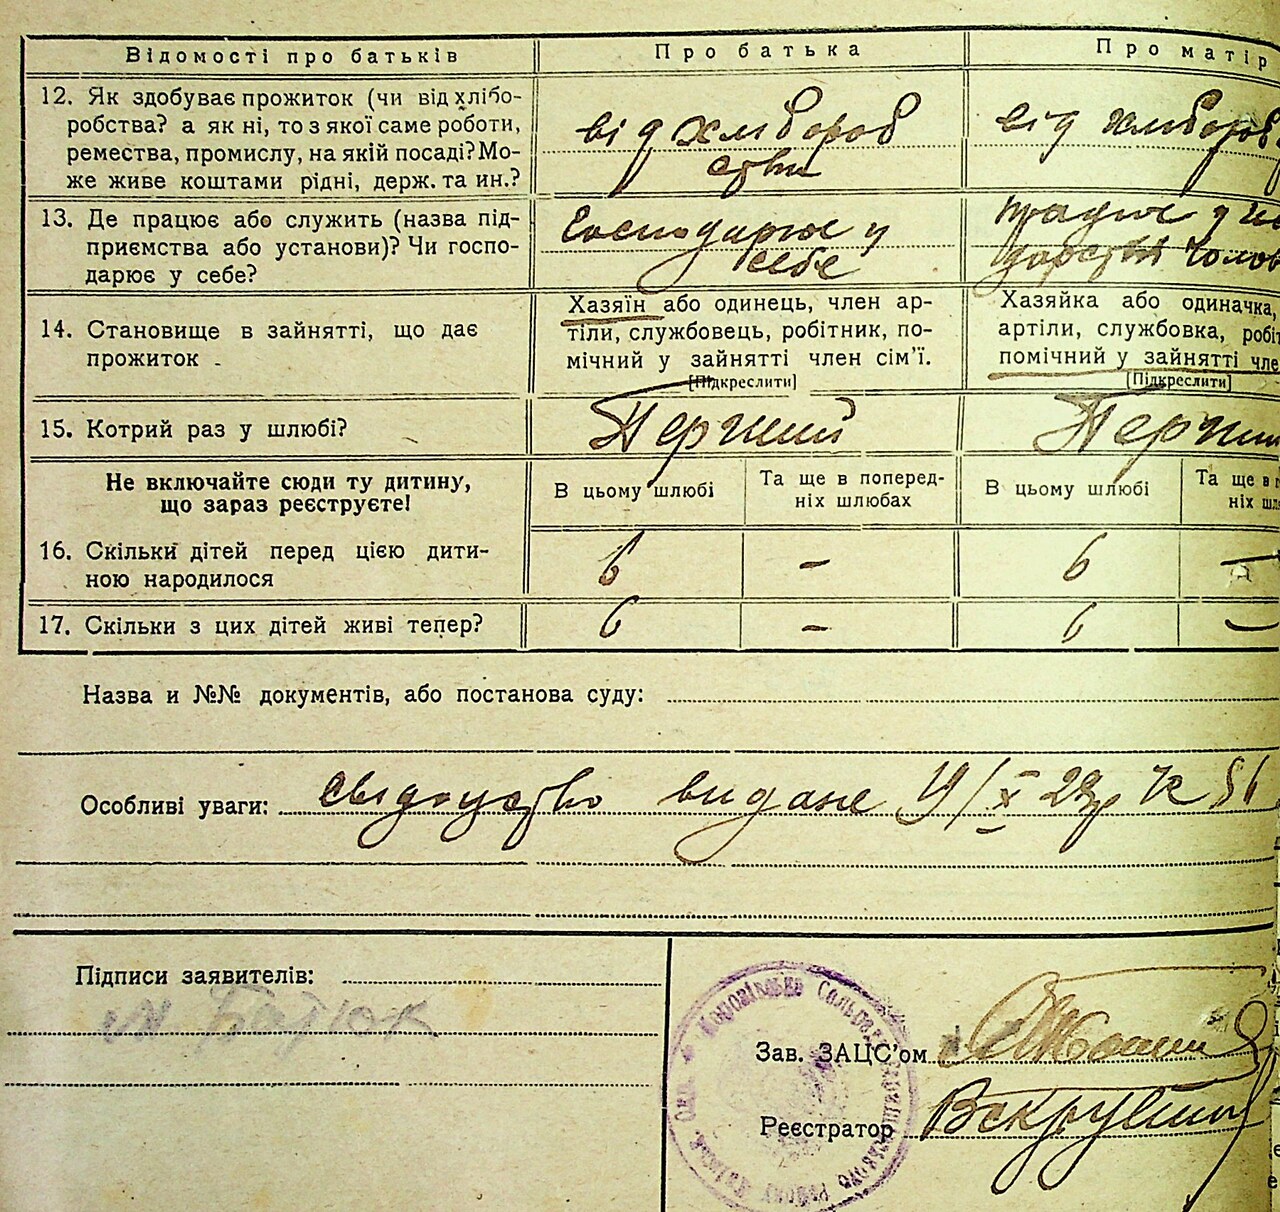 Відомості про батьків
Про батька
Про матір
12. Як здобуває прожиток (чи від хлібо-
робства? а як ні, то з якої саме роботи,
ремества, промислу, на якій посаді? Мо-
же живе коштами рідні, держ. та ин.?
від хлібороб
ства
від хлібороб
13. Де працює або служить (назва під-
приємства або установи)? Чи госпо-
дарює у себе?
Господарює у
себе
працює у
дарстві чолов
14. Становище в зайнятті, що дає
прожиток
Хазяїн або одинець, член ар-
тіли, службовець, робітник, по-
мічний у зайнятті член сім’ї.
[Підкреслити]
Хазяйка або одиначка,
артіли, службовка, робіт
помічний у зайнятті чле
[Підкреслити]
15. Котрий раз у шлюбі?
Перший
Перши
Не включайте сюди ту дитину,
що зараз реєструєте!
В цьому шлюбі
Та ще в поперед-
ніх шлюбах
В цьому шлюбі
Та ще в п
ніх шлю
16. Скільки дітей перед цією дити-
ною народилося
6
-
6
-
17. Скільки з цих дітей живі тепер?
6
-
6
-
Назва и №№ документів, або постанова суду:
Особливі уваги: свідоцтво видане
Підписи заявителів:
Батюк
Зав. ЗАЦС’ом
Реєстратор